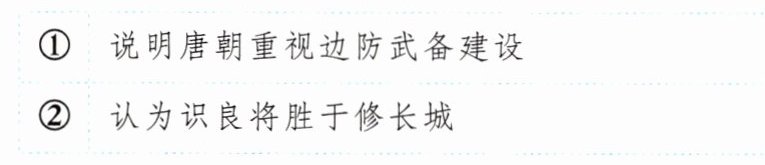 ① 说明唐朝重视边防武备建设
② 认为识良将胜于修长城